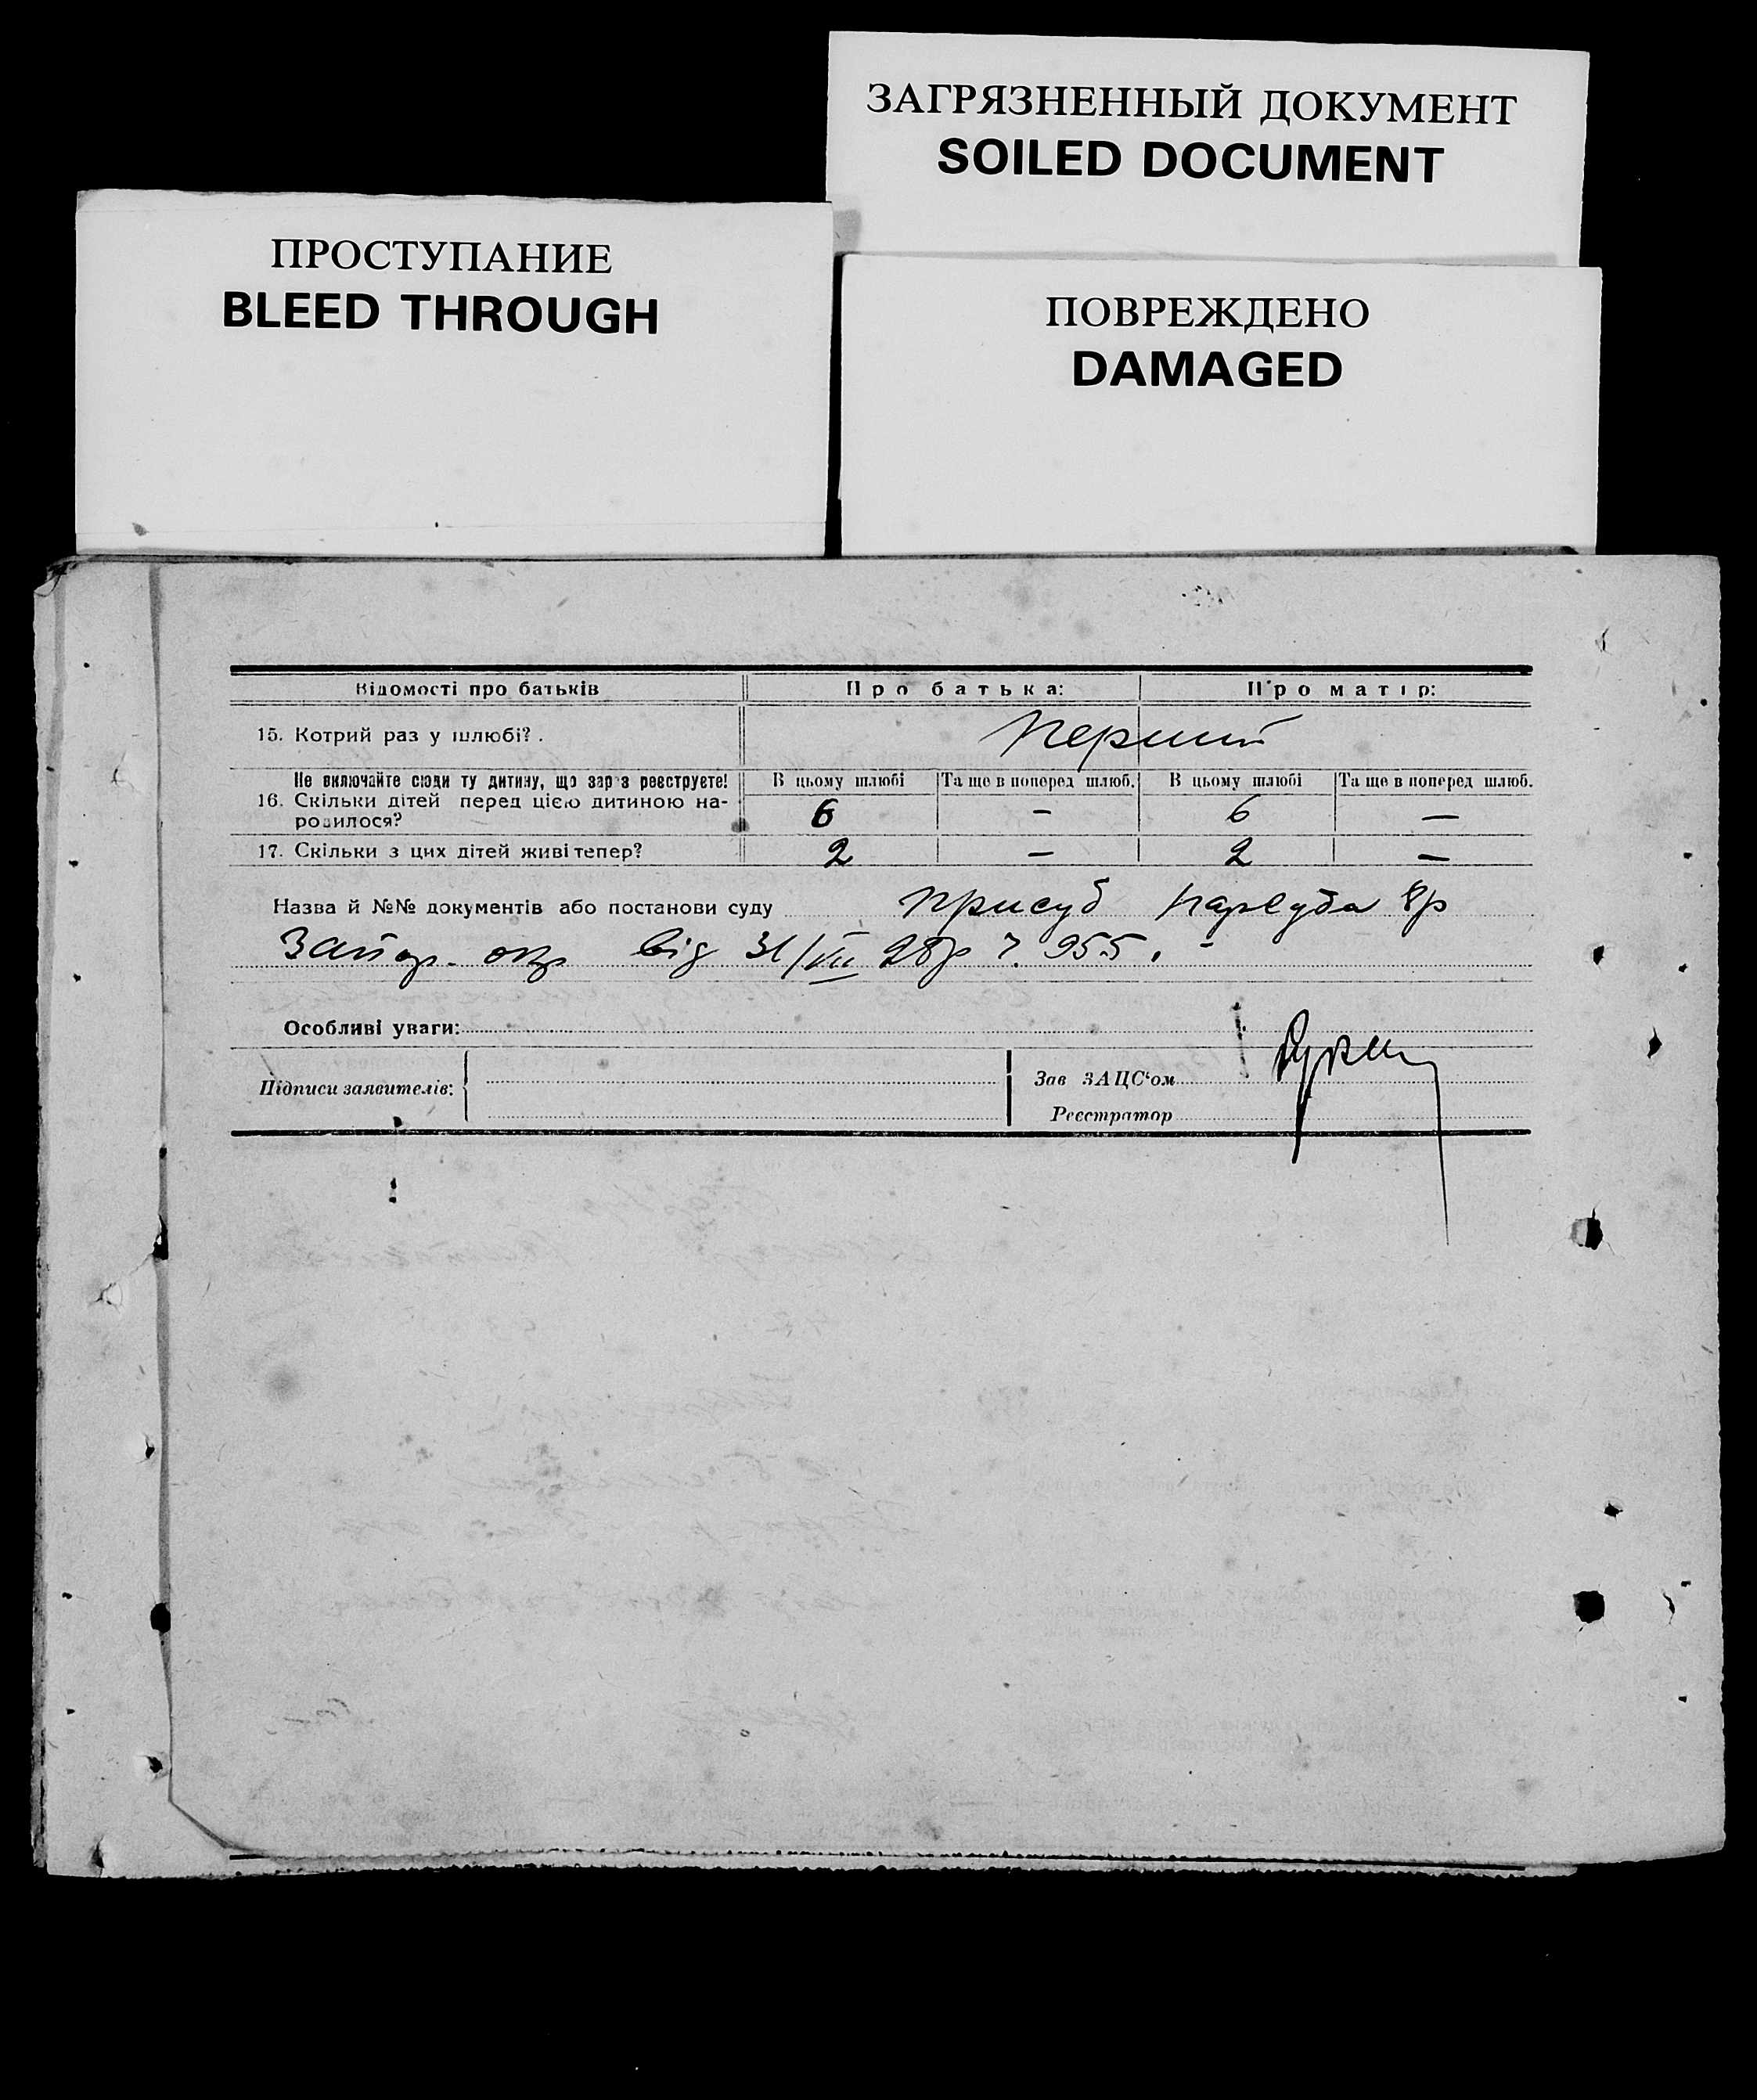 ЗАГРЯЗНЕННЫЙ ДОКУМЕНТ
SOILED DOCUMENT
ПРОСТУПАНИЕ
BLEED THROUGH
ПОВРЕЖДЕНО
DAMAGED
Відомості про батьків Про батька: Про матір:
15. Котрий раз у шлюбі?. Перший
Не включайте сюди ту дитину, що зараз реєструєте! В цьому шлюбі Та ще в поперед шлюб. В цьому шлюбі Та ще в поперед шлюб.
16. Скільки дітей перед цією дитиною на-
родилося? 6 – 6 –
17. Скільки з цих дітей живі тепер? 2 – 2 –
Назва й №№ документів або постанови суду присуд нарсуда 8р
Запор. окр від 31/VII 28р ч. 955. -
Особливі уваги:
Підписи заявителів: Зав ЗАЦС‘ом
Реєстратор